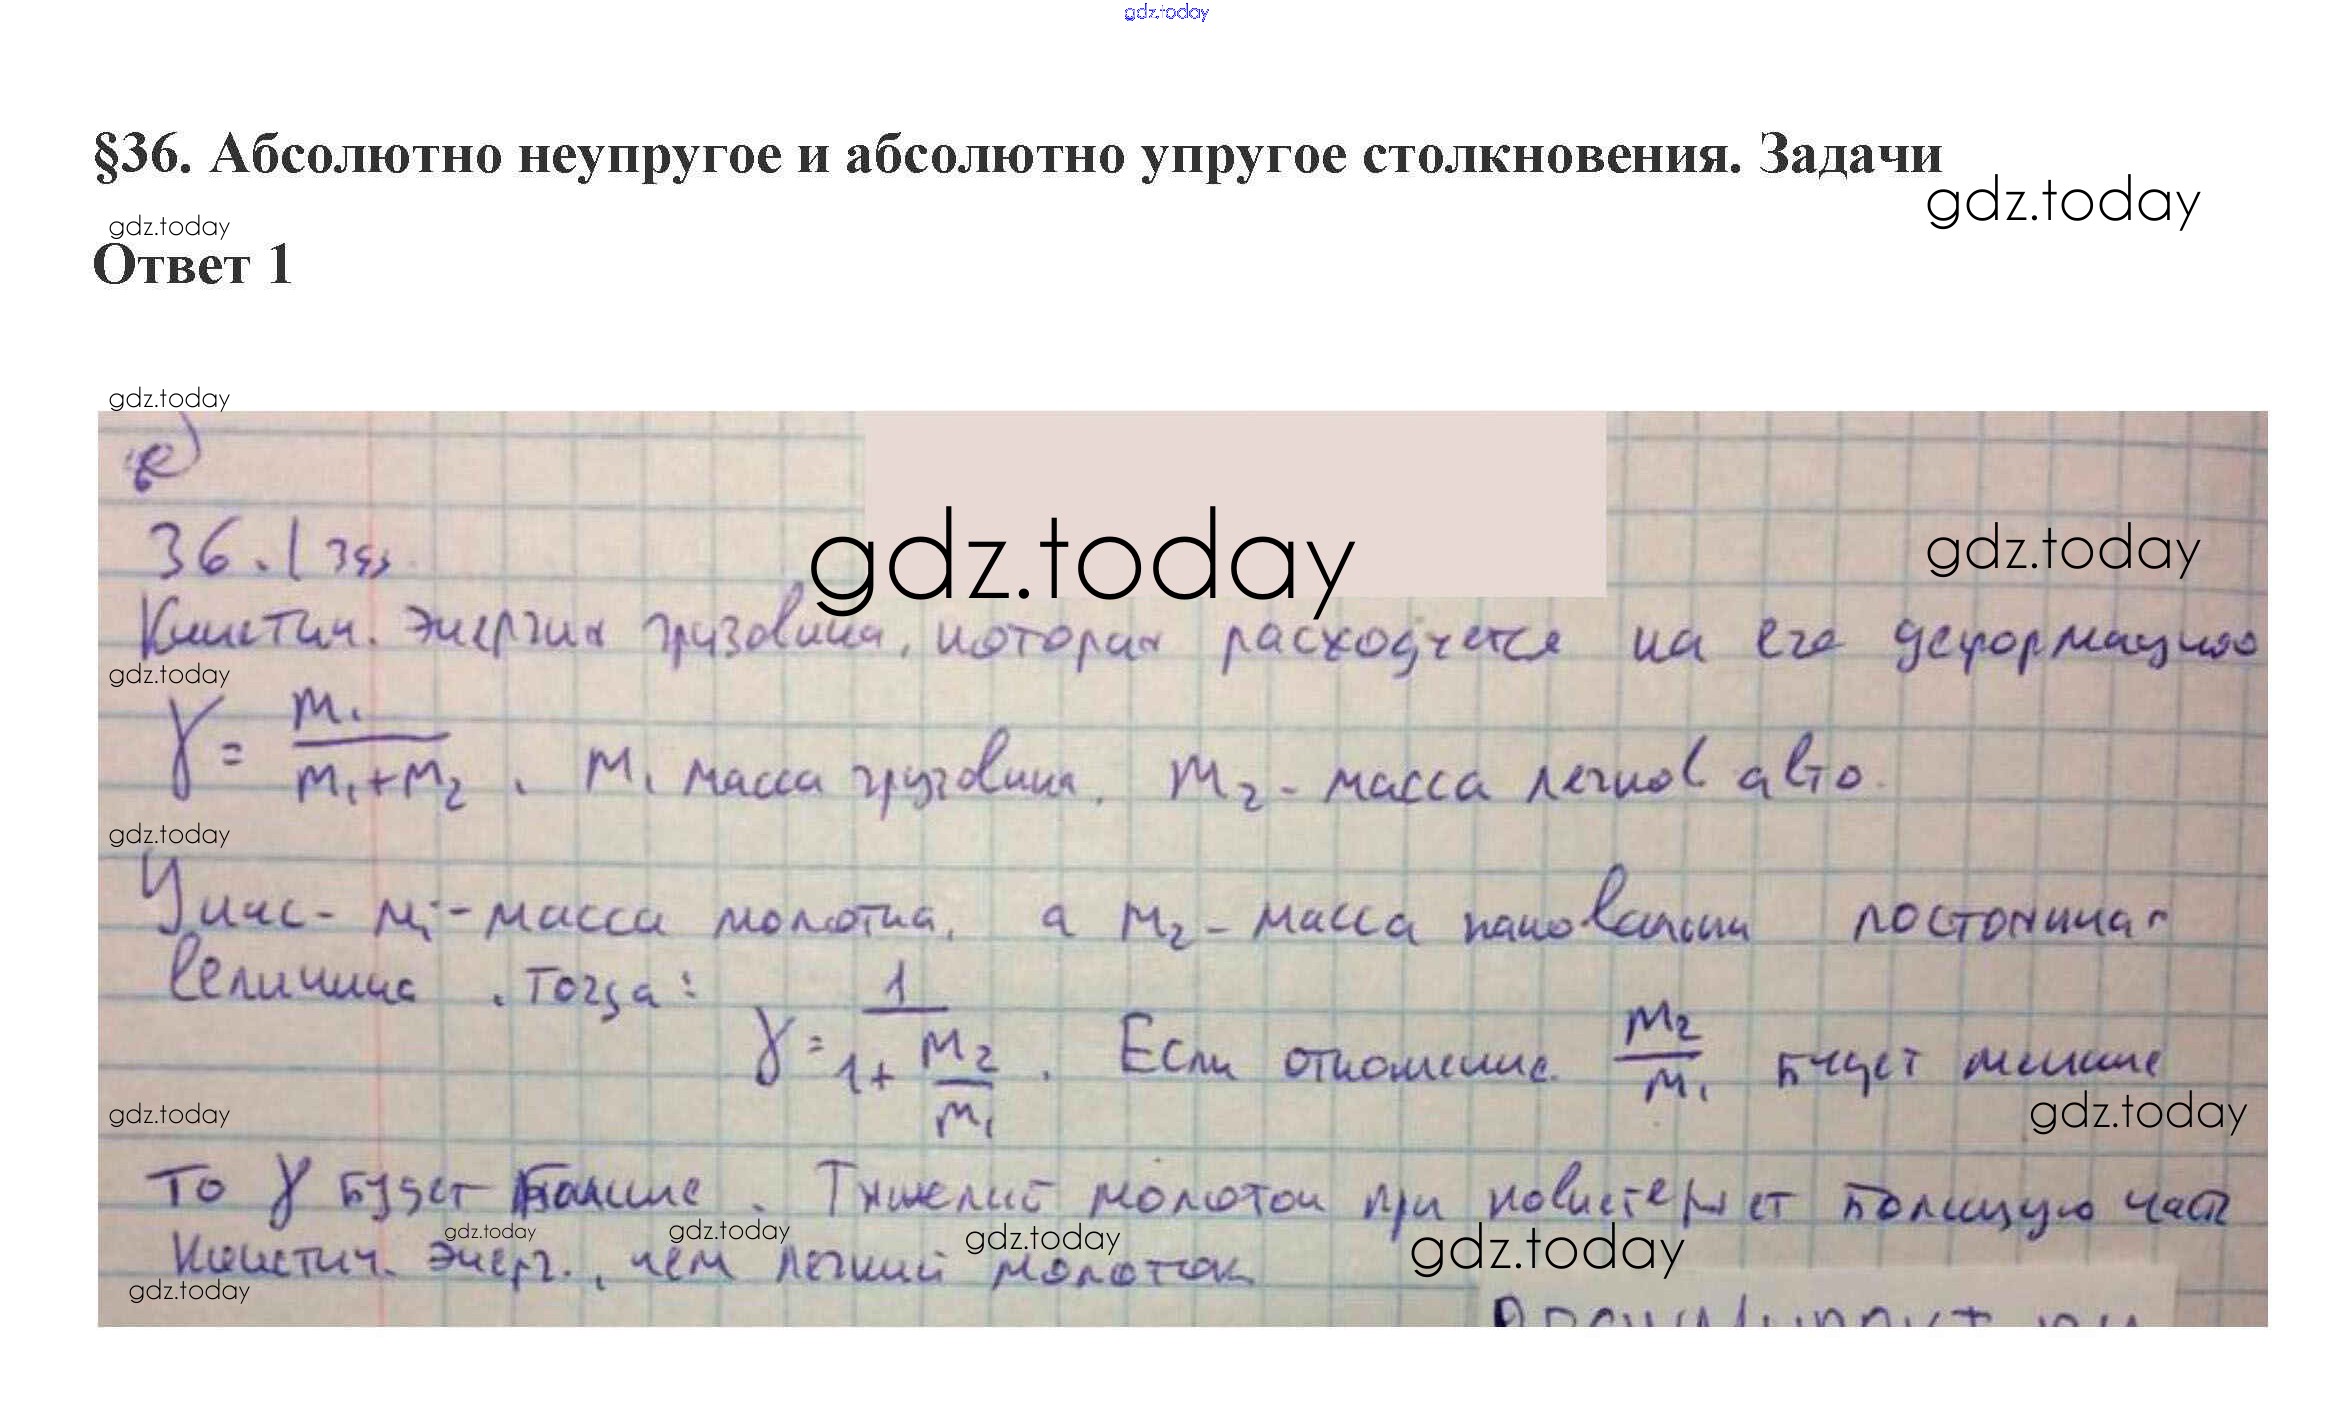 gdz.today
§36. Абсолютно неупругое и абсолютно упругое столкновения. Задачи
gdz.today
gdz.today
Ответ 1
gdz.today
е)
36.1 зад.
gdz.today
gdz.today
Кинетич. энергия грузовика, которая расходуется на его деформацию
gdz.today
γ = m₁/(m₁+m₂) . m₁ масса грузовика, m₂ - масса легков авто.
gdz.today
У нас - m₁ - масса молотка, а m₂ - масса наковальни постоянная
величина . Тогда:
γ = 1/(1+m₂/m₁) . Если отношение m₂/m₁ будет меньше
gdz.today
gdz.today
то γ будет больше . Тяжелый молоток при часть
gdz.today
gdz.today
gdz.today
gdz.today
кинетич. энерг., чем легкий молоток
gdz.today